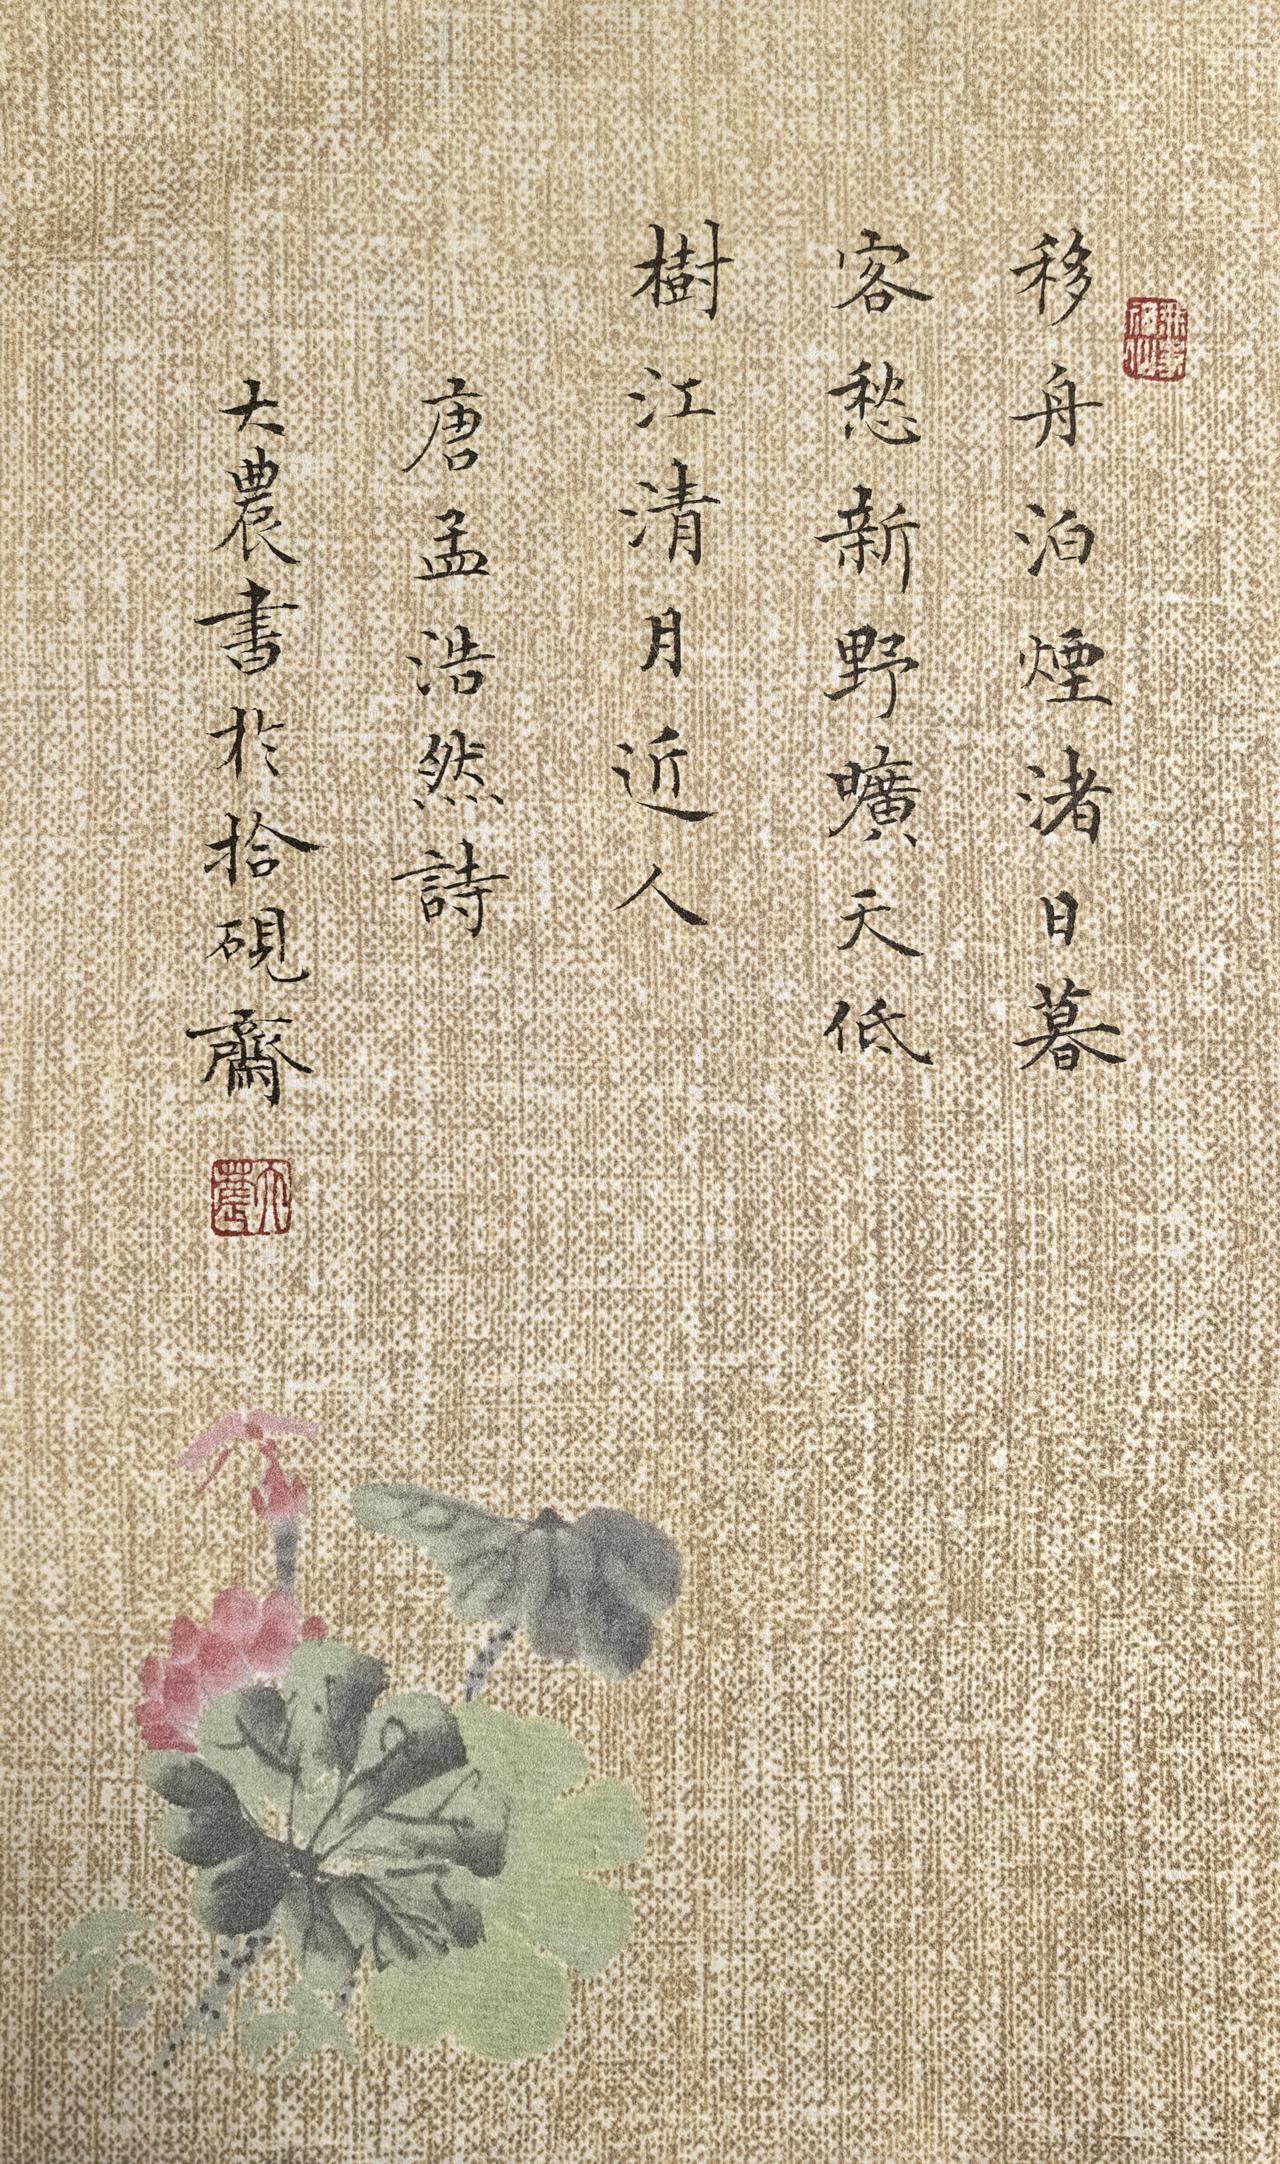 移舟泊煙渚日暮
客愁新野曠天低
樹江清月近人
唐孟浩然詩
大農書於拾硯齋
大農